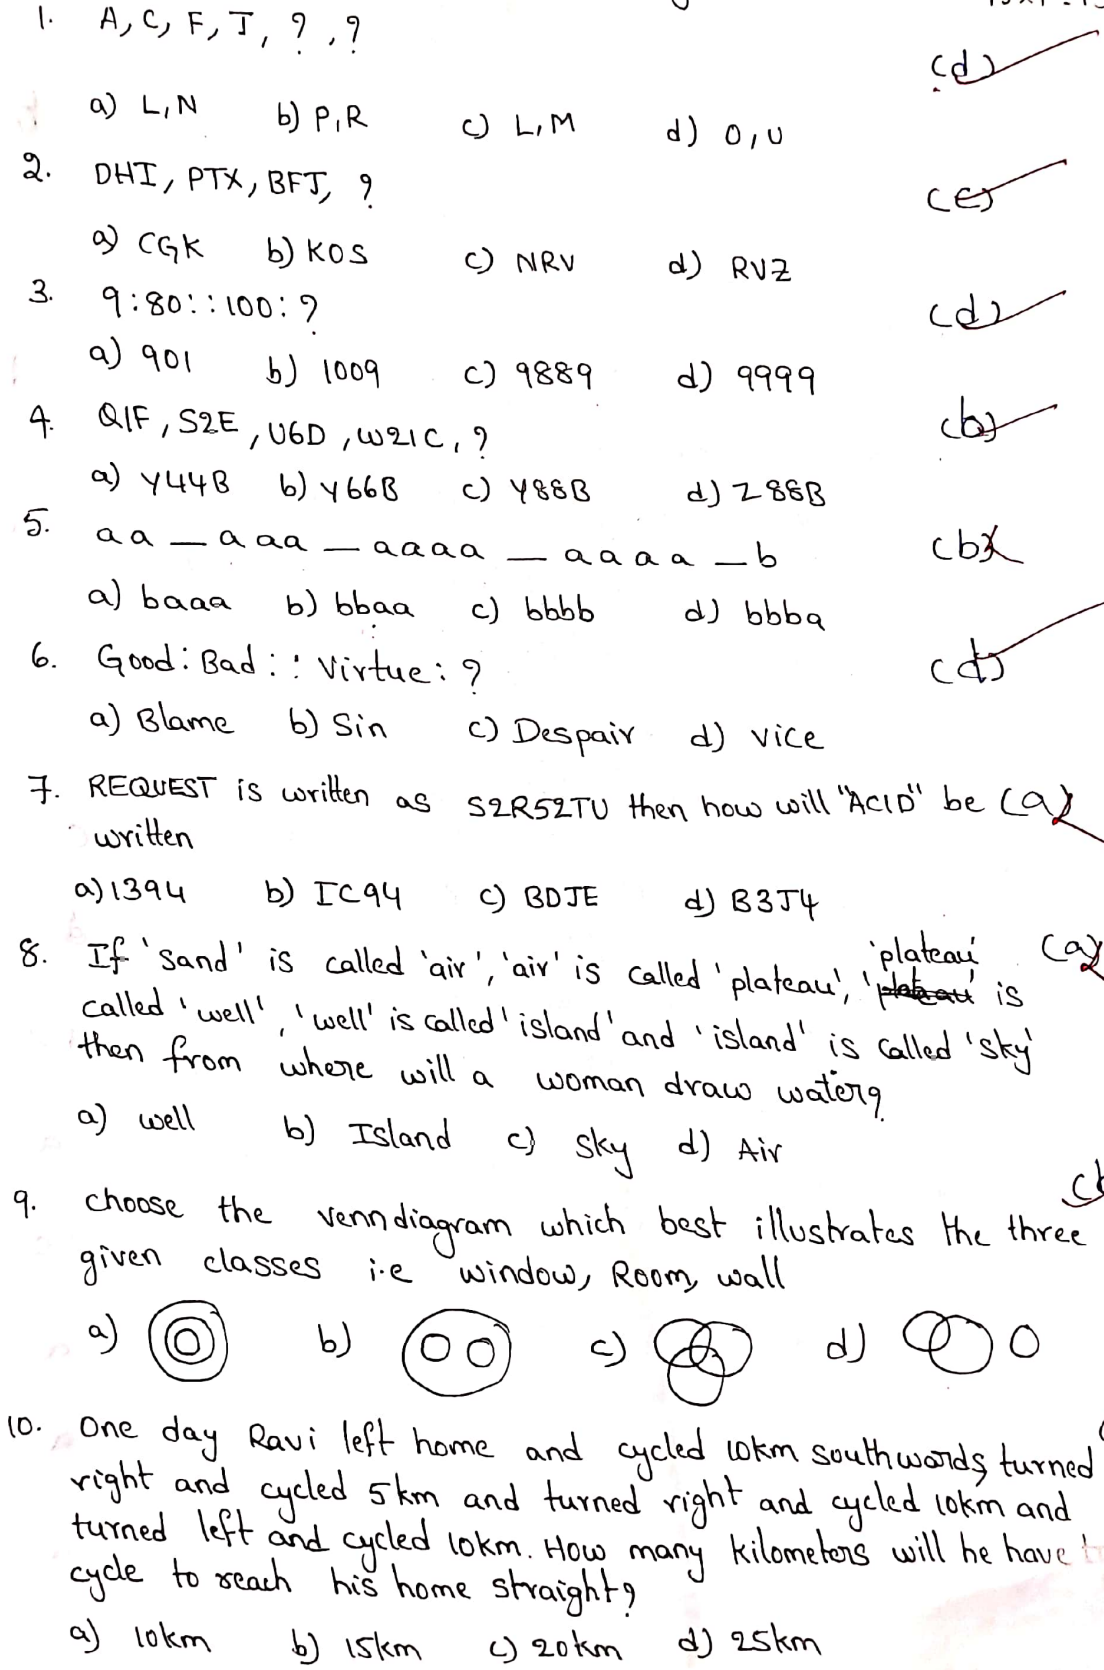 1. A, C, F, J, ?, ?
(d)
a) L,N b) P,R c) L,M d) O,U
2. DHI, PTX, BFJ, ?
(c)
a) CGK b) KOS c) NRV d) RVZ
3. 9:80::100:?
(d)
a) 901 b) 1009 c) 9889 d) 9999
4. Q1F, S2E, U6D, W21C, ?
(b)
a) Y44B b) Y66B c) Y88B d) Z88B
5. aa _ aaa _ aaaa _ aaaa _ b
(b)
a) baaa b) bbaa c) bbbb d) bbba
6. Good: Bad:: Virtue: ?
(d)
a) Blame b) Sin c) Despair d) vice
7. REQUEST is written as S2R52TU then how will "ACID" be (a)
written
a) 1394 b) IC94 c) BDJE d) B3J4
8. If 'sand' is called 'air', 'air' is called 'plateau', 'plateau' is (a)
called 'well', 'well' is called 'island' and 'island' is called 'sky'
then from where will a woman draw water?
a) well b) Island c) sky d) Air
9. choose the venndiagram which best illustrates the three
given classes i.e window, Room, wall
a) b) c) d)
10. One day Ravi left home and cycled 10km southwards, turned
right and cycled 5km and turned right and cycled 10km and
turned left and cycled 10km. How many kilometers will he have
cycle to reach his home straight?
a) 10km b) 15km c) 20km d) 25km